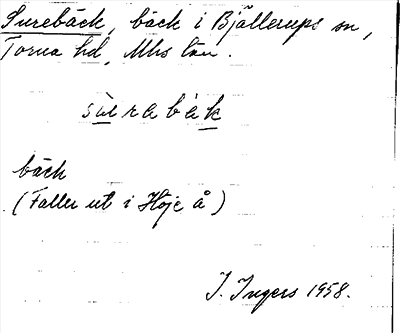 Surebäck, bäck i Bjällerups sn,
Torna hd, Mhs län.
su̇rabàk
bäck
(Faller ut i Höje å)
I. Ingers 1958.